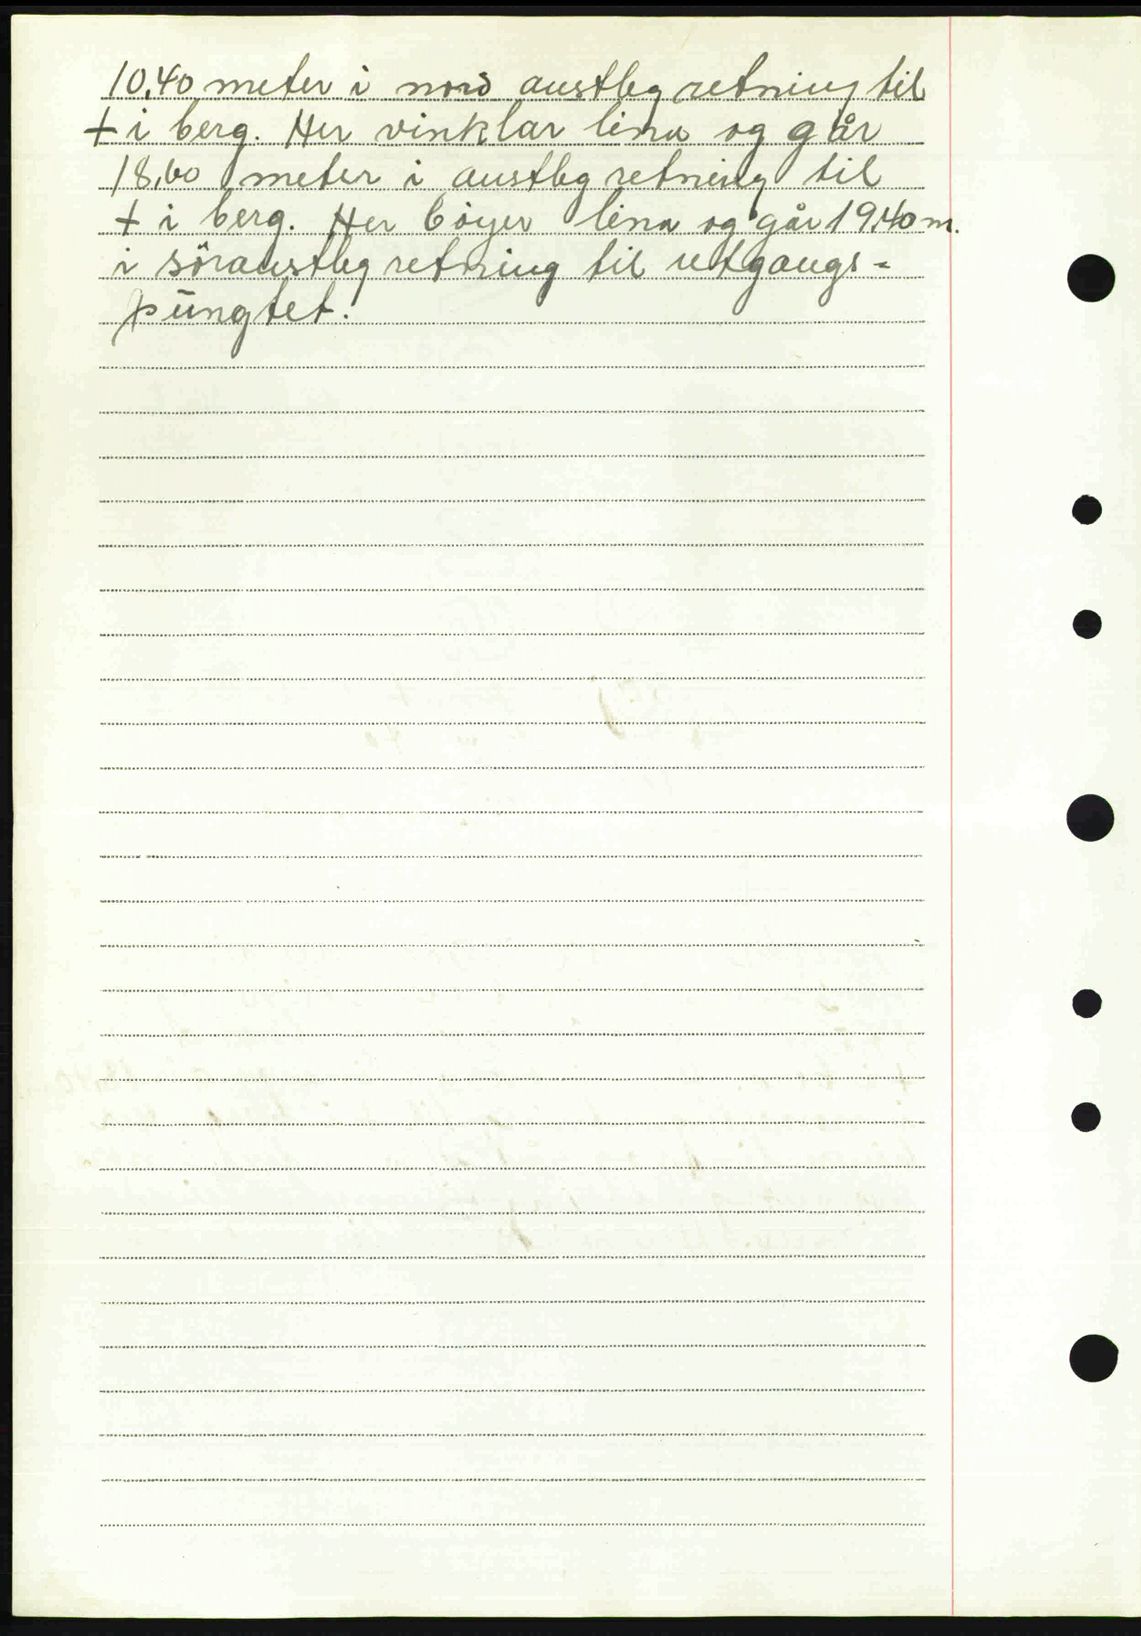 10,40 meter i nord austleg retning til
+ i berg. Her vinklar lina og går
18,60 meter i austleg retning til
+ i berg. Her böyer lina og går 19,40 m.
i söraustleg retning til utgangs=
pungtet.